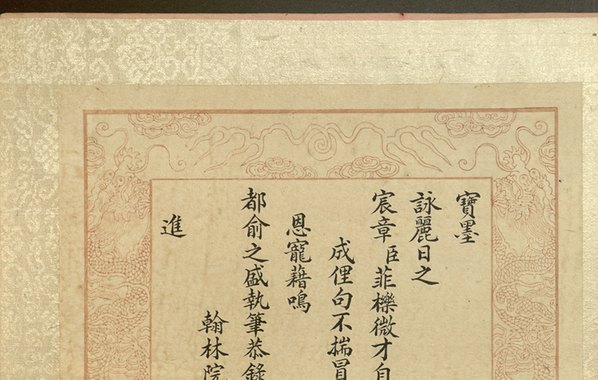 寶墨
詠麗日之
宸章臣菲櫟微才自
成俚句不揣冒
恩寵藉鳴
都俞之盛執筆恭錄
翰林院
進